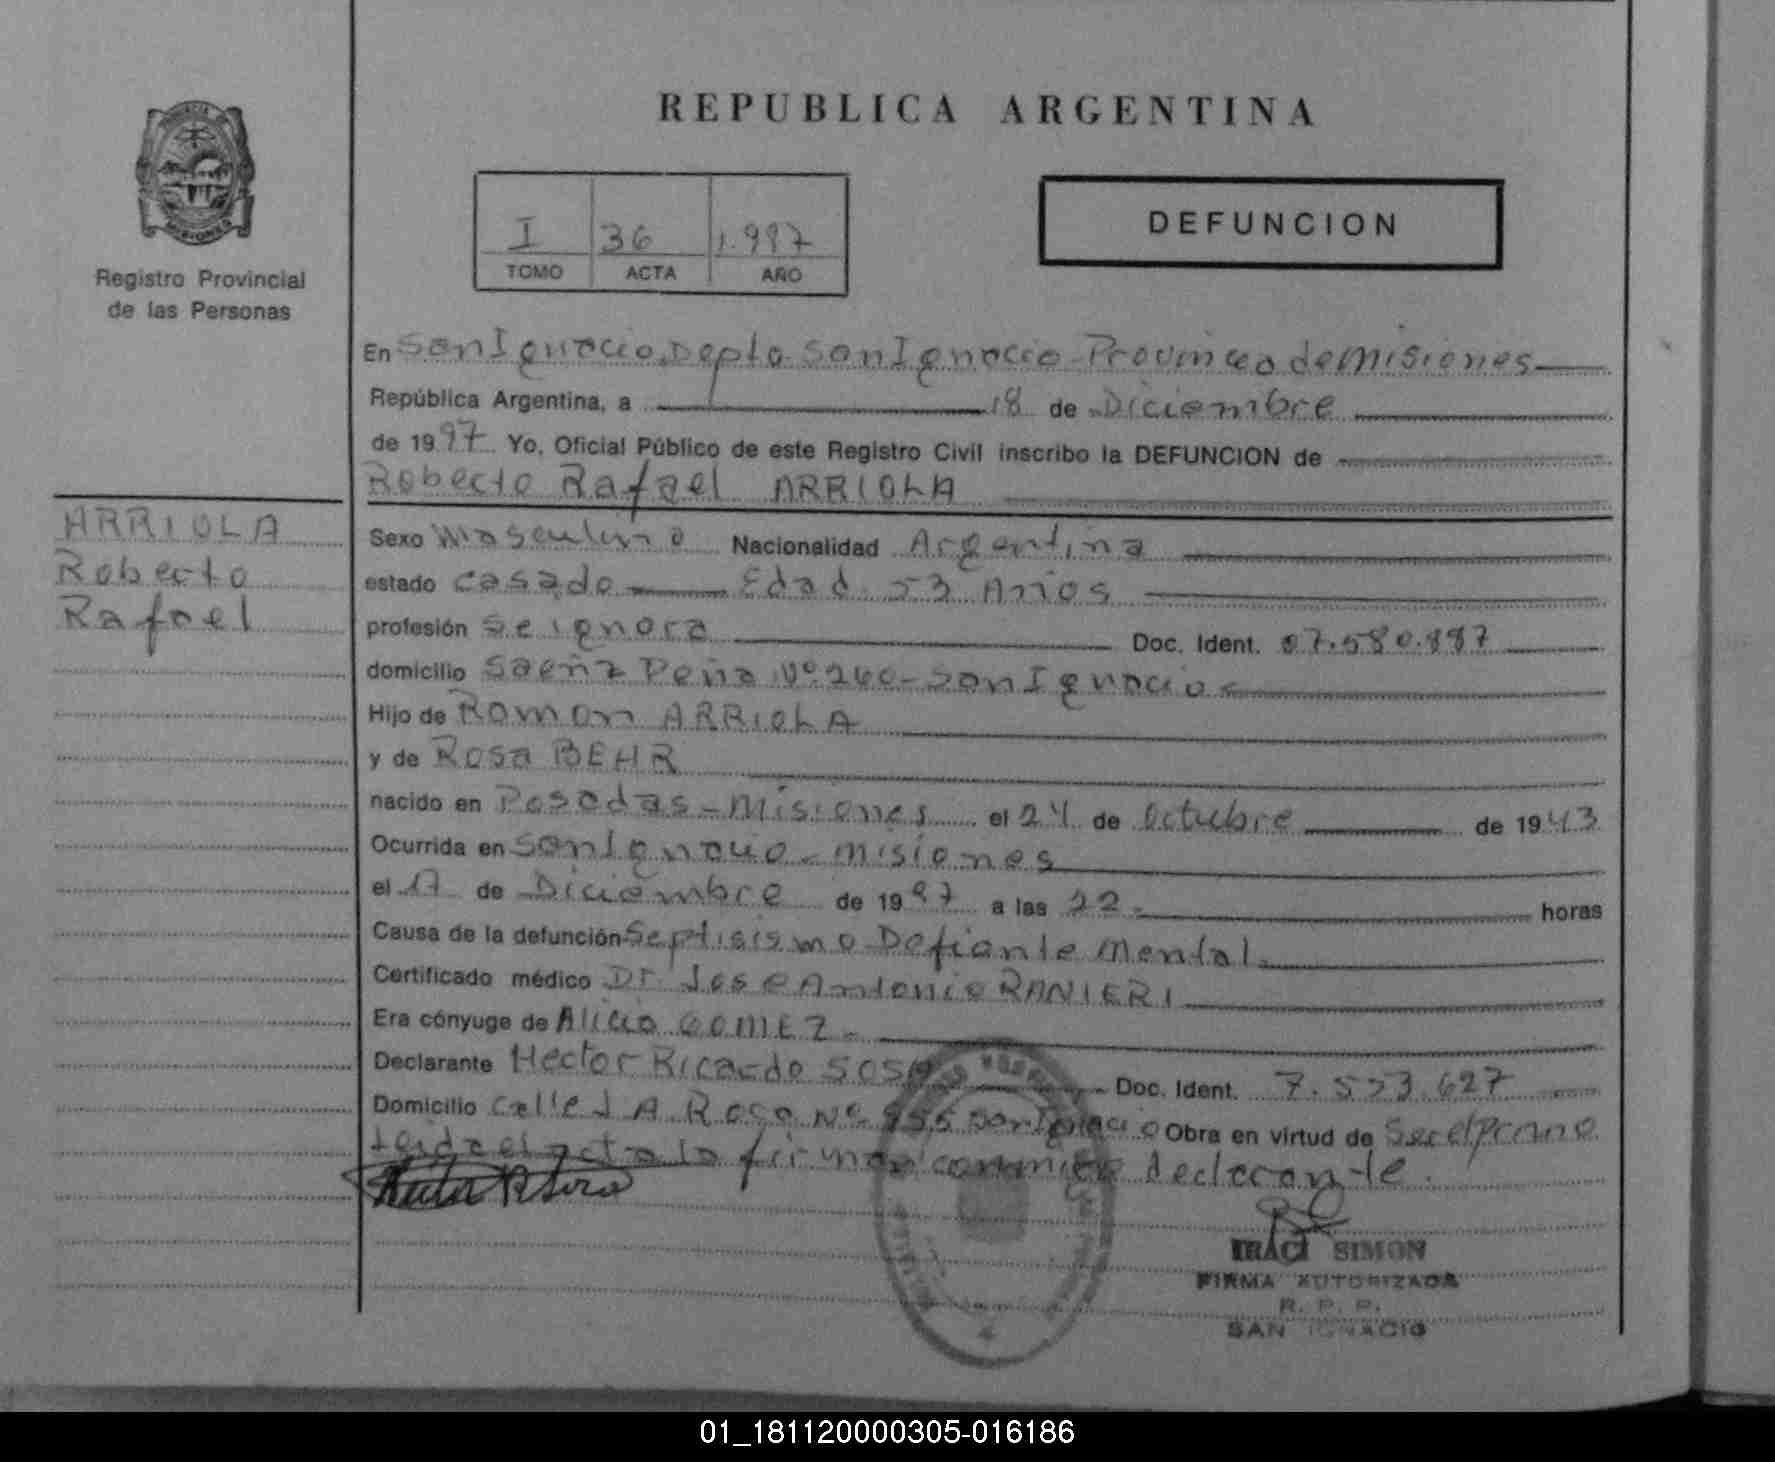 REPUBLICA ARGENTINA
Registro Provincial
de las Personas
I 36 1.997
TOMO ACTA AÑO
DEFUNCION
En San Ignacio, Depto San Ignacio - Provincia de Misiones
República Argentina, a 18 de Diciembre
de 1997 Yo, Oficial Público de este Registro Civil inscribo la DEFUNCION de
Roberto Rafael ARRIOLA
ARRIOLA
Roberto
Rafael
Sexo Masculino Nacionalidad Argentina
estado casado Edad 53 Años
profesión Se ignora Doc. Ident. 07.580.887
domicilio Saenz Peña Nº 240 - San Ignacio
Hijo de Ramon ARRIOLA
y de Rosa BEHR
nacido en Posadas - Misiones el 24 de Octubre de 1943
Ocurrida en San Ignacio - Misiones
el 17 de Diciembre de 1997 a las 22 - horas
Causa de la defunción Septisismo Defiante Mental
Certificado médico Dr. Jose Antonio RANIERI
Era cónyuge de Alicia GOMEZ -
Declarante Hector Ricardo SOSA Doc. Ident. 7.533.627
Domicilio calle J A Roca Nº San Ignacio Obra en virtud de Ser el
Leida el acta la firma conmigo declarante.
IRACI SIMON
FIRMA AUTORIZADA
R. P. P.
SAN IGNACIO
01_181120000305-016186